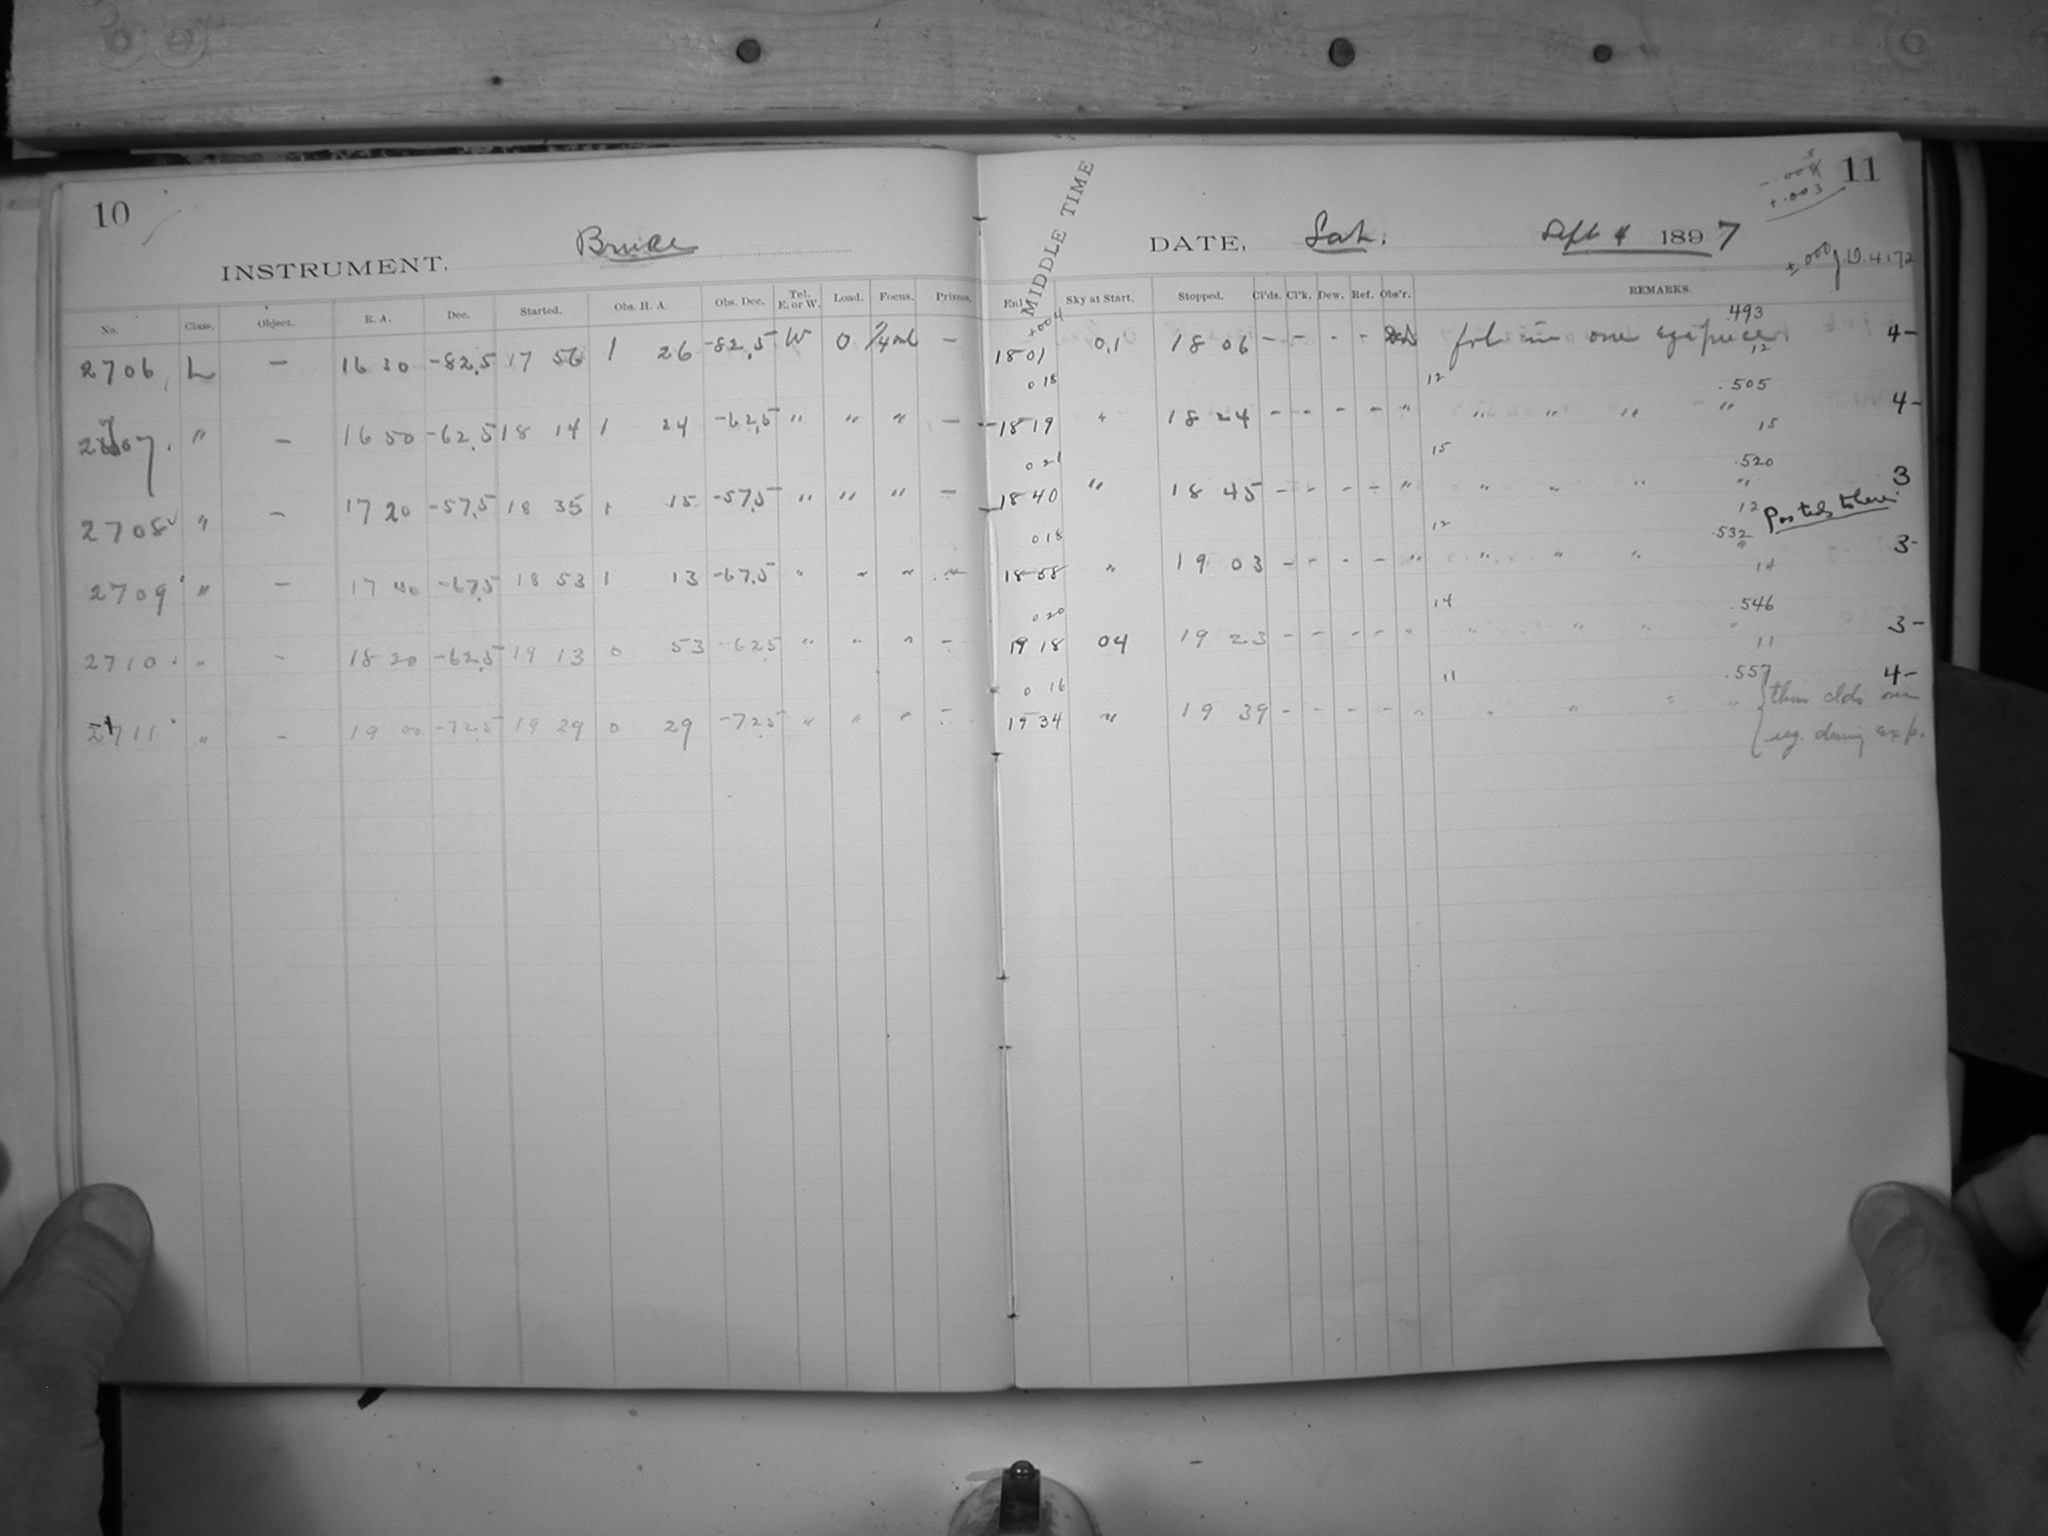 10
INSTRUMENT, Bruce
No. Class. Object. R. A. Dec. Started. Obs. H. A. Obs. Dec. Tel. E. or W. Load. Focus. Prisms.
2706 L — 16 30 -82.5 17 56 1 26 -82.5 W 0 —
2707 " — 16 50 -62.5 18 14 1 24 -62.5 " " " —
2708 " — 17 20 -57.5 18 35 1 15 -57.5 " " " —
2709 " — 17 40 -67.5 18 53 1 13 -67.5 " " " "
2710 " — 18 20 -62.5 19 13 0 53 -62.5 " " " —
2711 " — 19 00 -72.5 19 29 0 29 -72.5 " " " —
+.003
11
MIDDLE TIME
DATE, Sat. Sept 4 1897
J.D. 4172
Sky at Start. Stopped. Cl'ds. Cl'k. Dew. Ref. Obs'r. REMARKS.
+004 493
1801 0,1 18 06 — — - - fol. in one eyepiece. 4-
018 12 12 .505
1819 " 18 24 - - - - " " " " " 4-
021 15 15 .520
1840 " 18 45 - - - - " " " " " 3
018 12 12 .532 Posted to here.
1858 " 19 03 - - - - " " " " " 3-
020 14 14 .546
19 18 04 19 23 - - - - " " " " " 3-
0 16 11 11 .557
19 34 " 19 39 - - - - " " " " " 4-
thin clds over
reg. during exp.